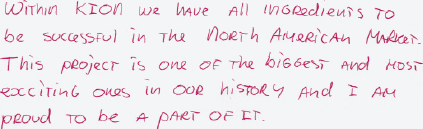 Within KION we have all ingredients to
be successful in the North American Market.
This project is one of the biggest and most
excciting ones in our history and I am
proud to be a part of it.